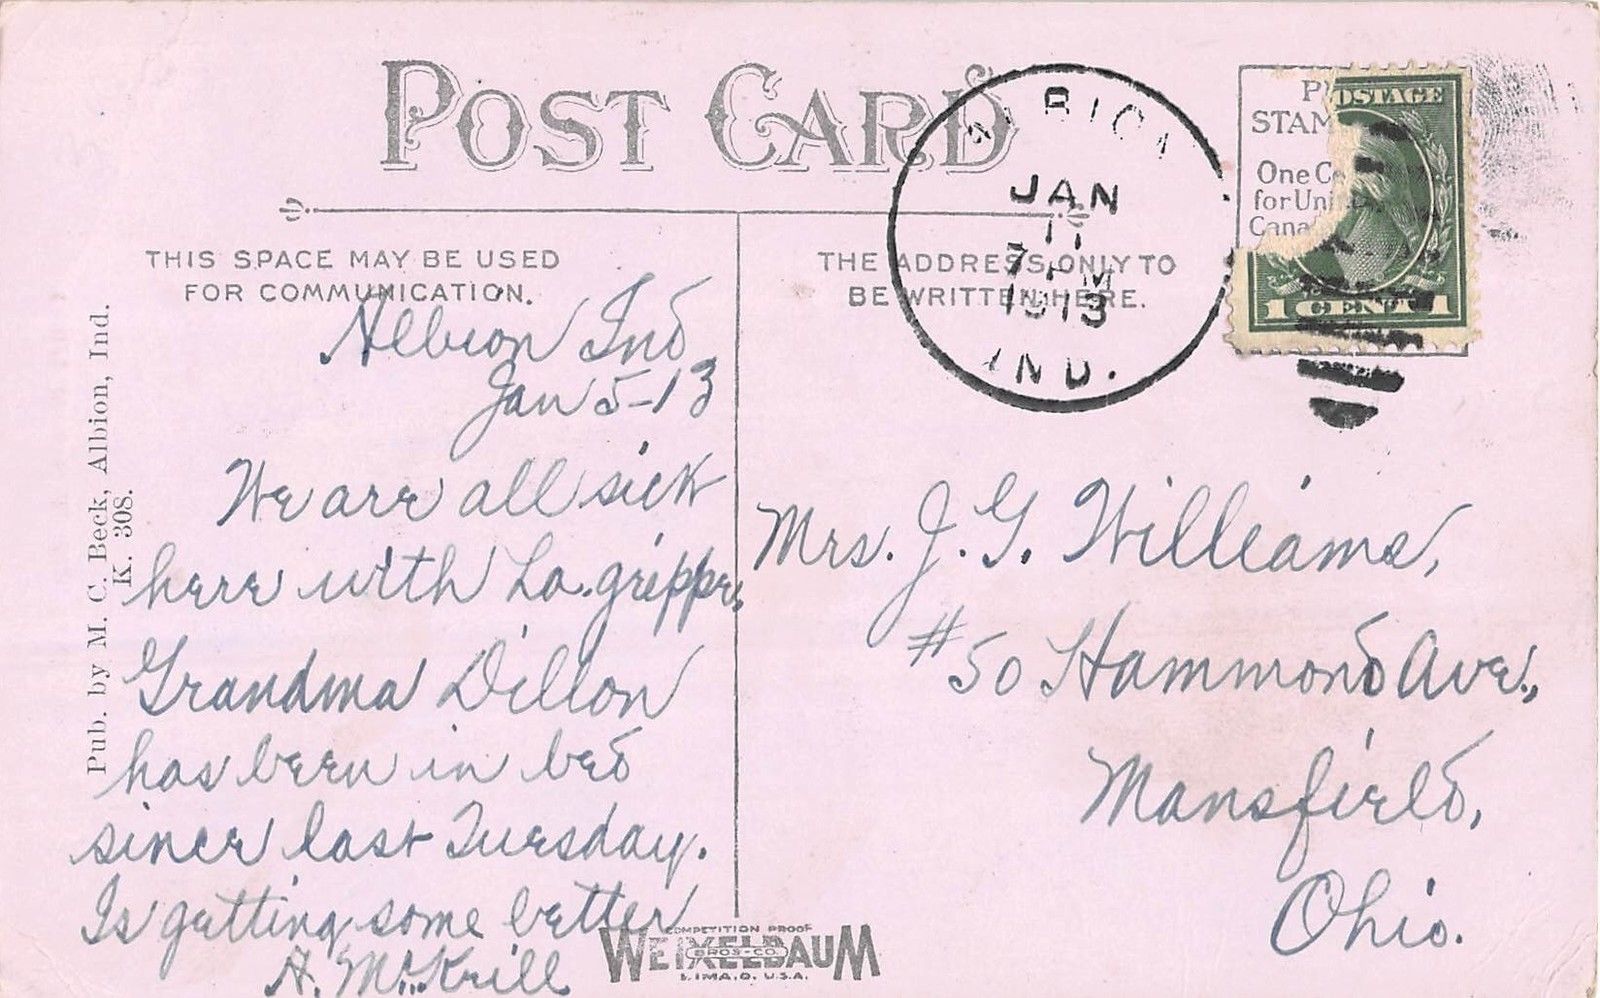 POST CARD
THIS SPACE MAY BE USED
FOR COMMUNICATION.
THE ADDRESS ONLY TO
BE WRITTEN HERE.
ALBION
JAN
11
7 PM
1913
IND.
STAM
One Ce
for Uni
Cana
POSTAGE
1 CENT 1
Pub. by M. C. Beck, Albion, Ind.
K. 308.
Albion Ind
Jan 5-13
We are all sick
here with La. grippe.
Grandma Dillon
has been in bed
since last Tuesday.
Is getting some better
A. McKrill
Mrs. J. G. Williams,
#50 Hammond Ave.,
Mansfield,
Ohio.
COMPETITION PROOF
WEIXELBAUM
BROS. CO.
LIMA, O. U.S.A.